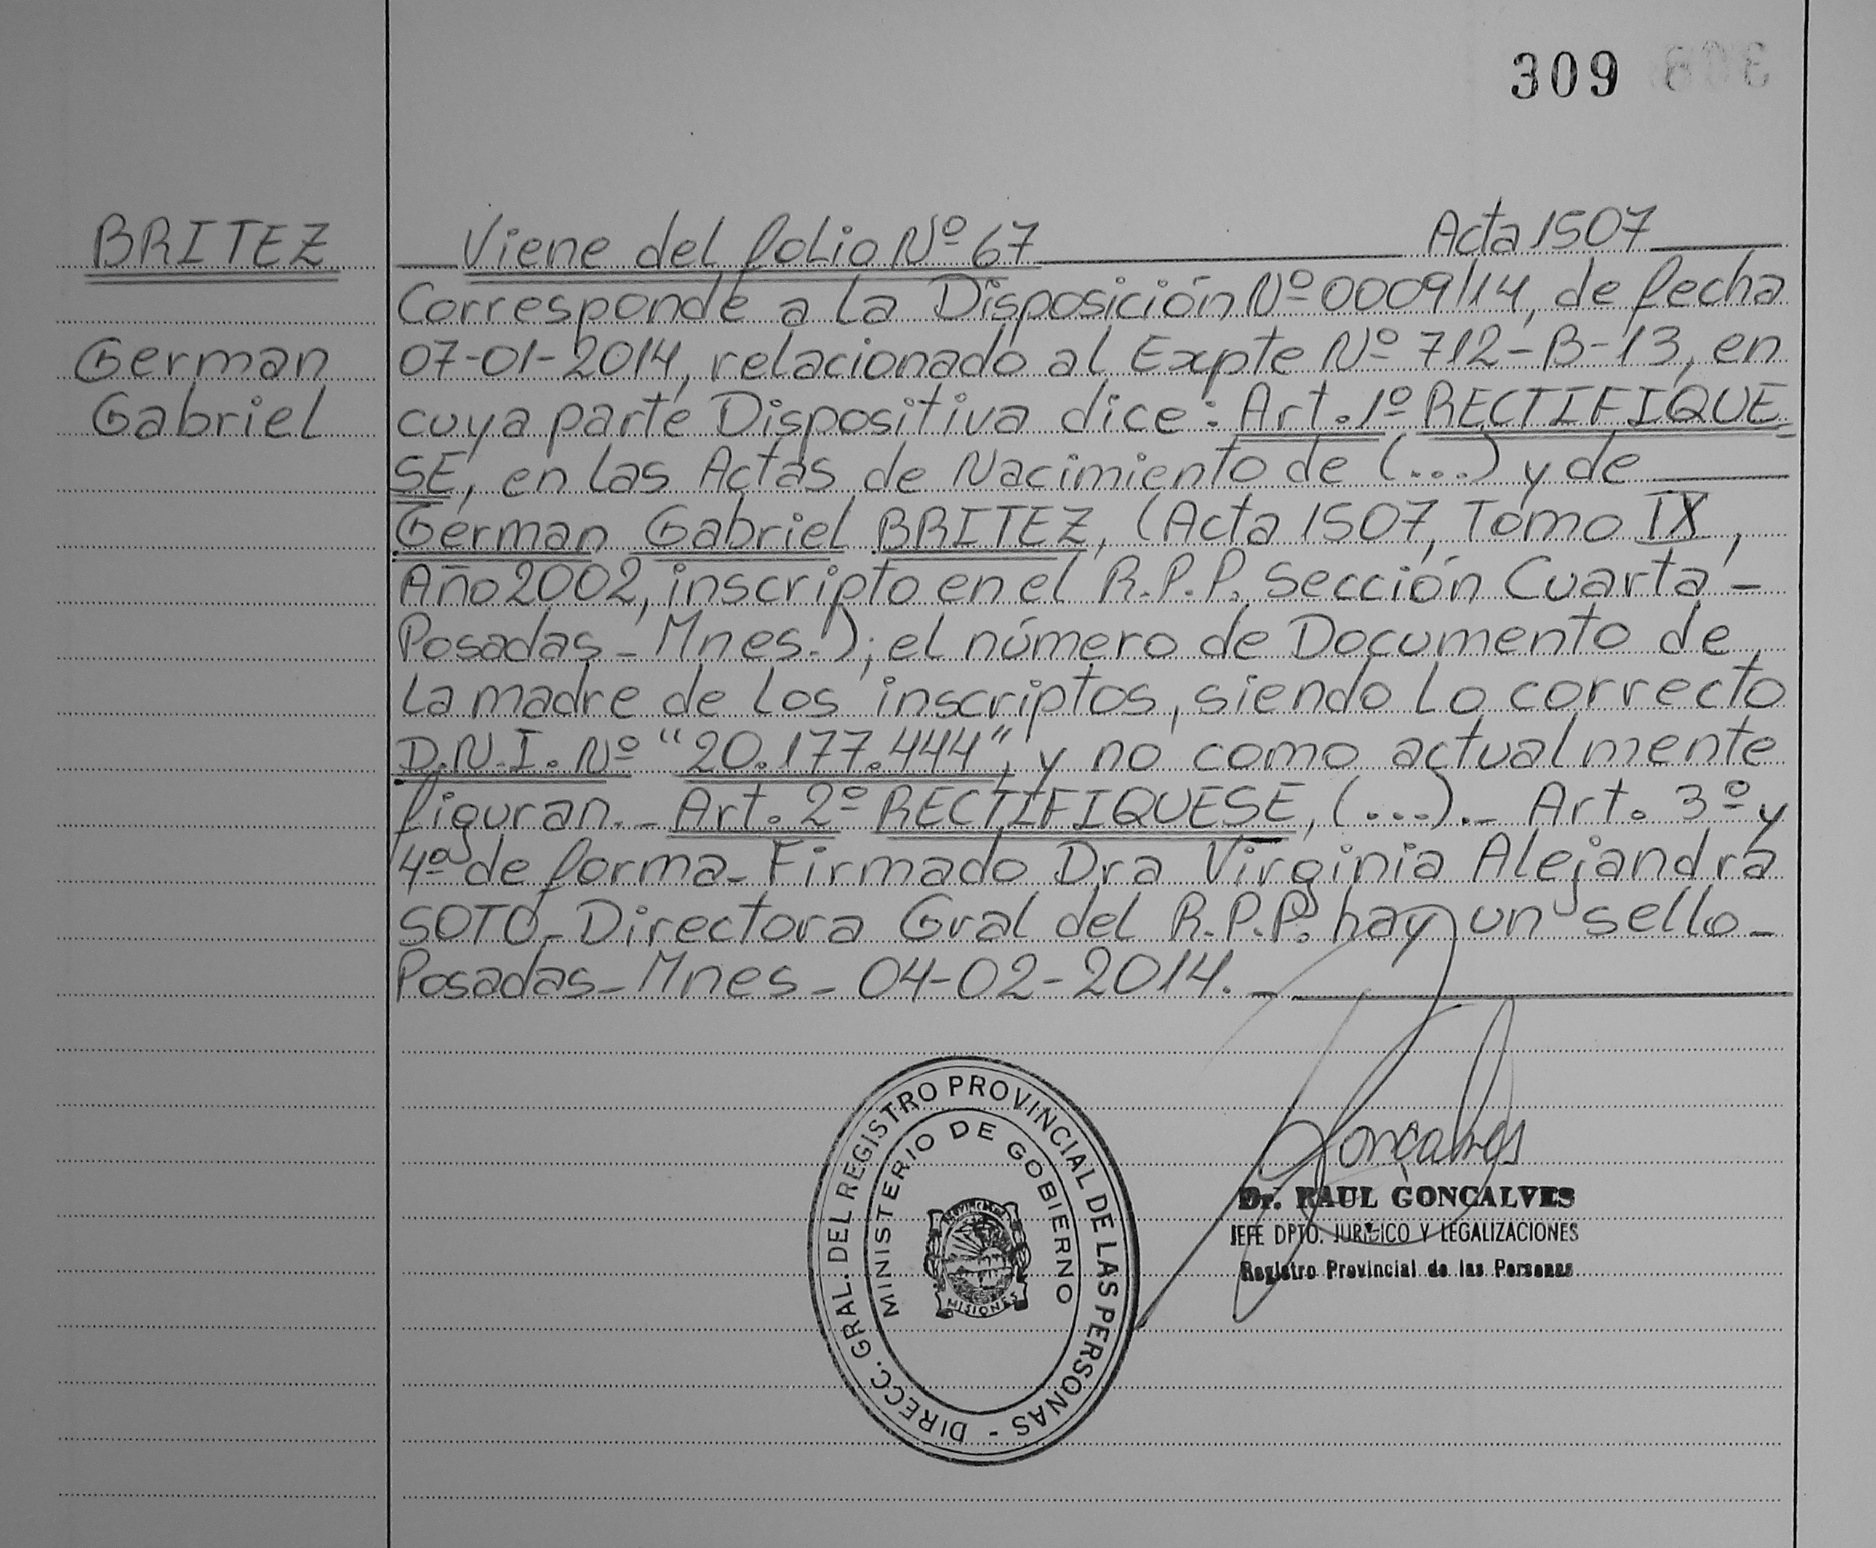 309
BRITEZ
German
Gabriel
Viene del folio Nº 67 Acta 1507
Corresponde a la Disposición Nº 0009/14, de fecha
07-01-2014, relacionado al Expte Nº 712-B-13, en
cuya parte Dispositiva dice: Art. 1º RECTIFIQUE
SE, en las Actas de Nacimiento de (...) y de
Germán Gabriel BRITEZ, (Acta 1507, Tomo IX,
Año 2002, inscripto en el R.P.P. Sección Cuarta -
Posadas - Mnes.); el número de Documento de
la madre de los inscriptos, siendo lo correcto
D.N.I. Nº "20.177.444", y no como actualmente
figuran. - Art. 2º RECTIFIQUESE, (...). - Art. 3º y
4º de forma - Firmado Dra Virginia Alejandra
SOTO - Directora Gral del R.P.P. hay un sello -
Posadas - Mnes - 04-02-2014. -
DIRECC. GRAL. DEL REGISTRO PROVINCIAL DE LAS PERSONAS -
MINISTERIO DE GOBIERNO
MISIONES
Goncalves
Dr. RAUL GONCALVES
JEFE DPTO. JURIDICO Y LEGALIZACIONES
Registro Provincial de las Personas